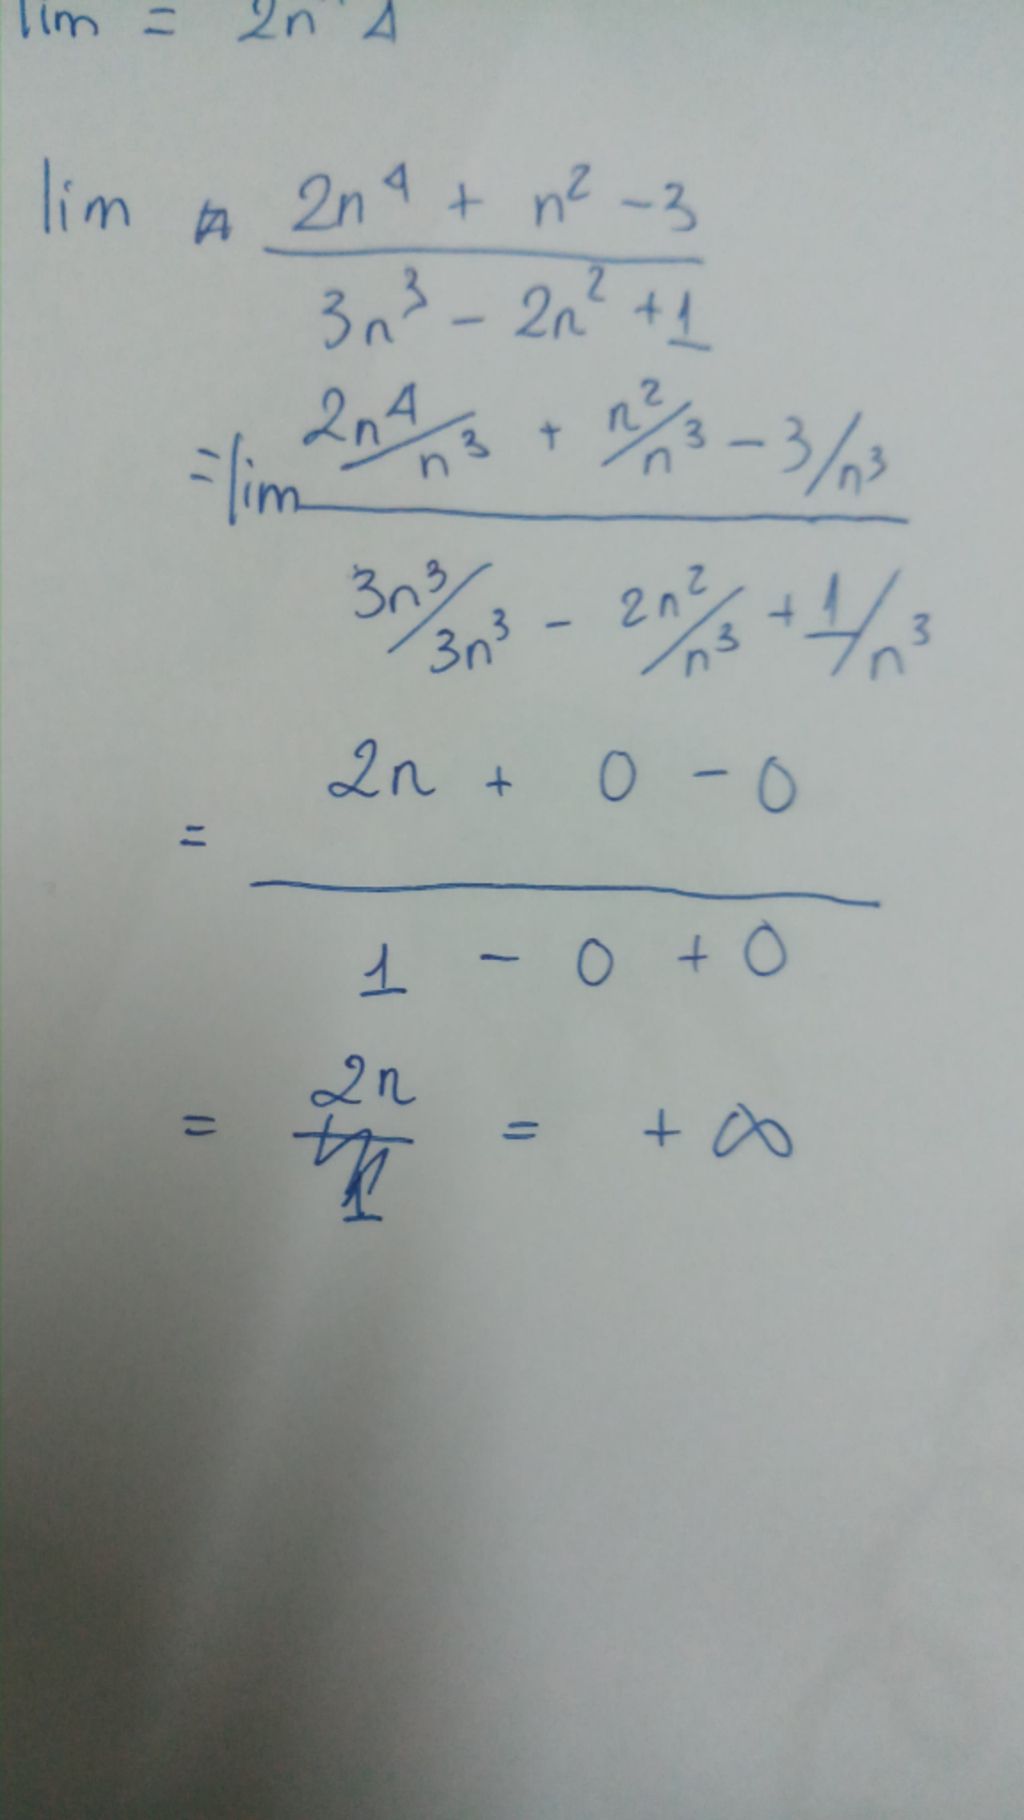 lim = 2n^4
lim (2n^4 + n^2 - 3) / (3n^3 - 2n^2 + 1)
= lim (2n^4/n^3 + n^2/n^3 - 3/n^3) / (3n^3/3n^3 - 2n^2/n^3 + 1/n^3)
= (2n + 0 - 0) / (1 - 0 + 0)
= 2n/1 = + ∞